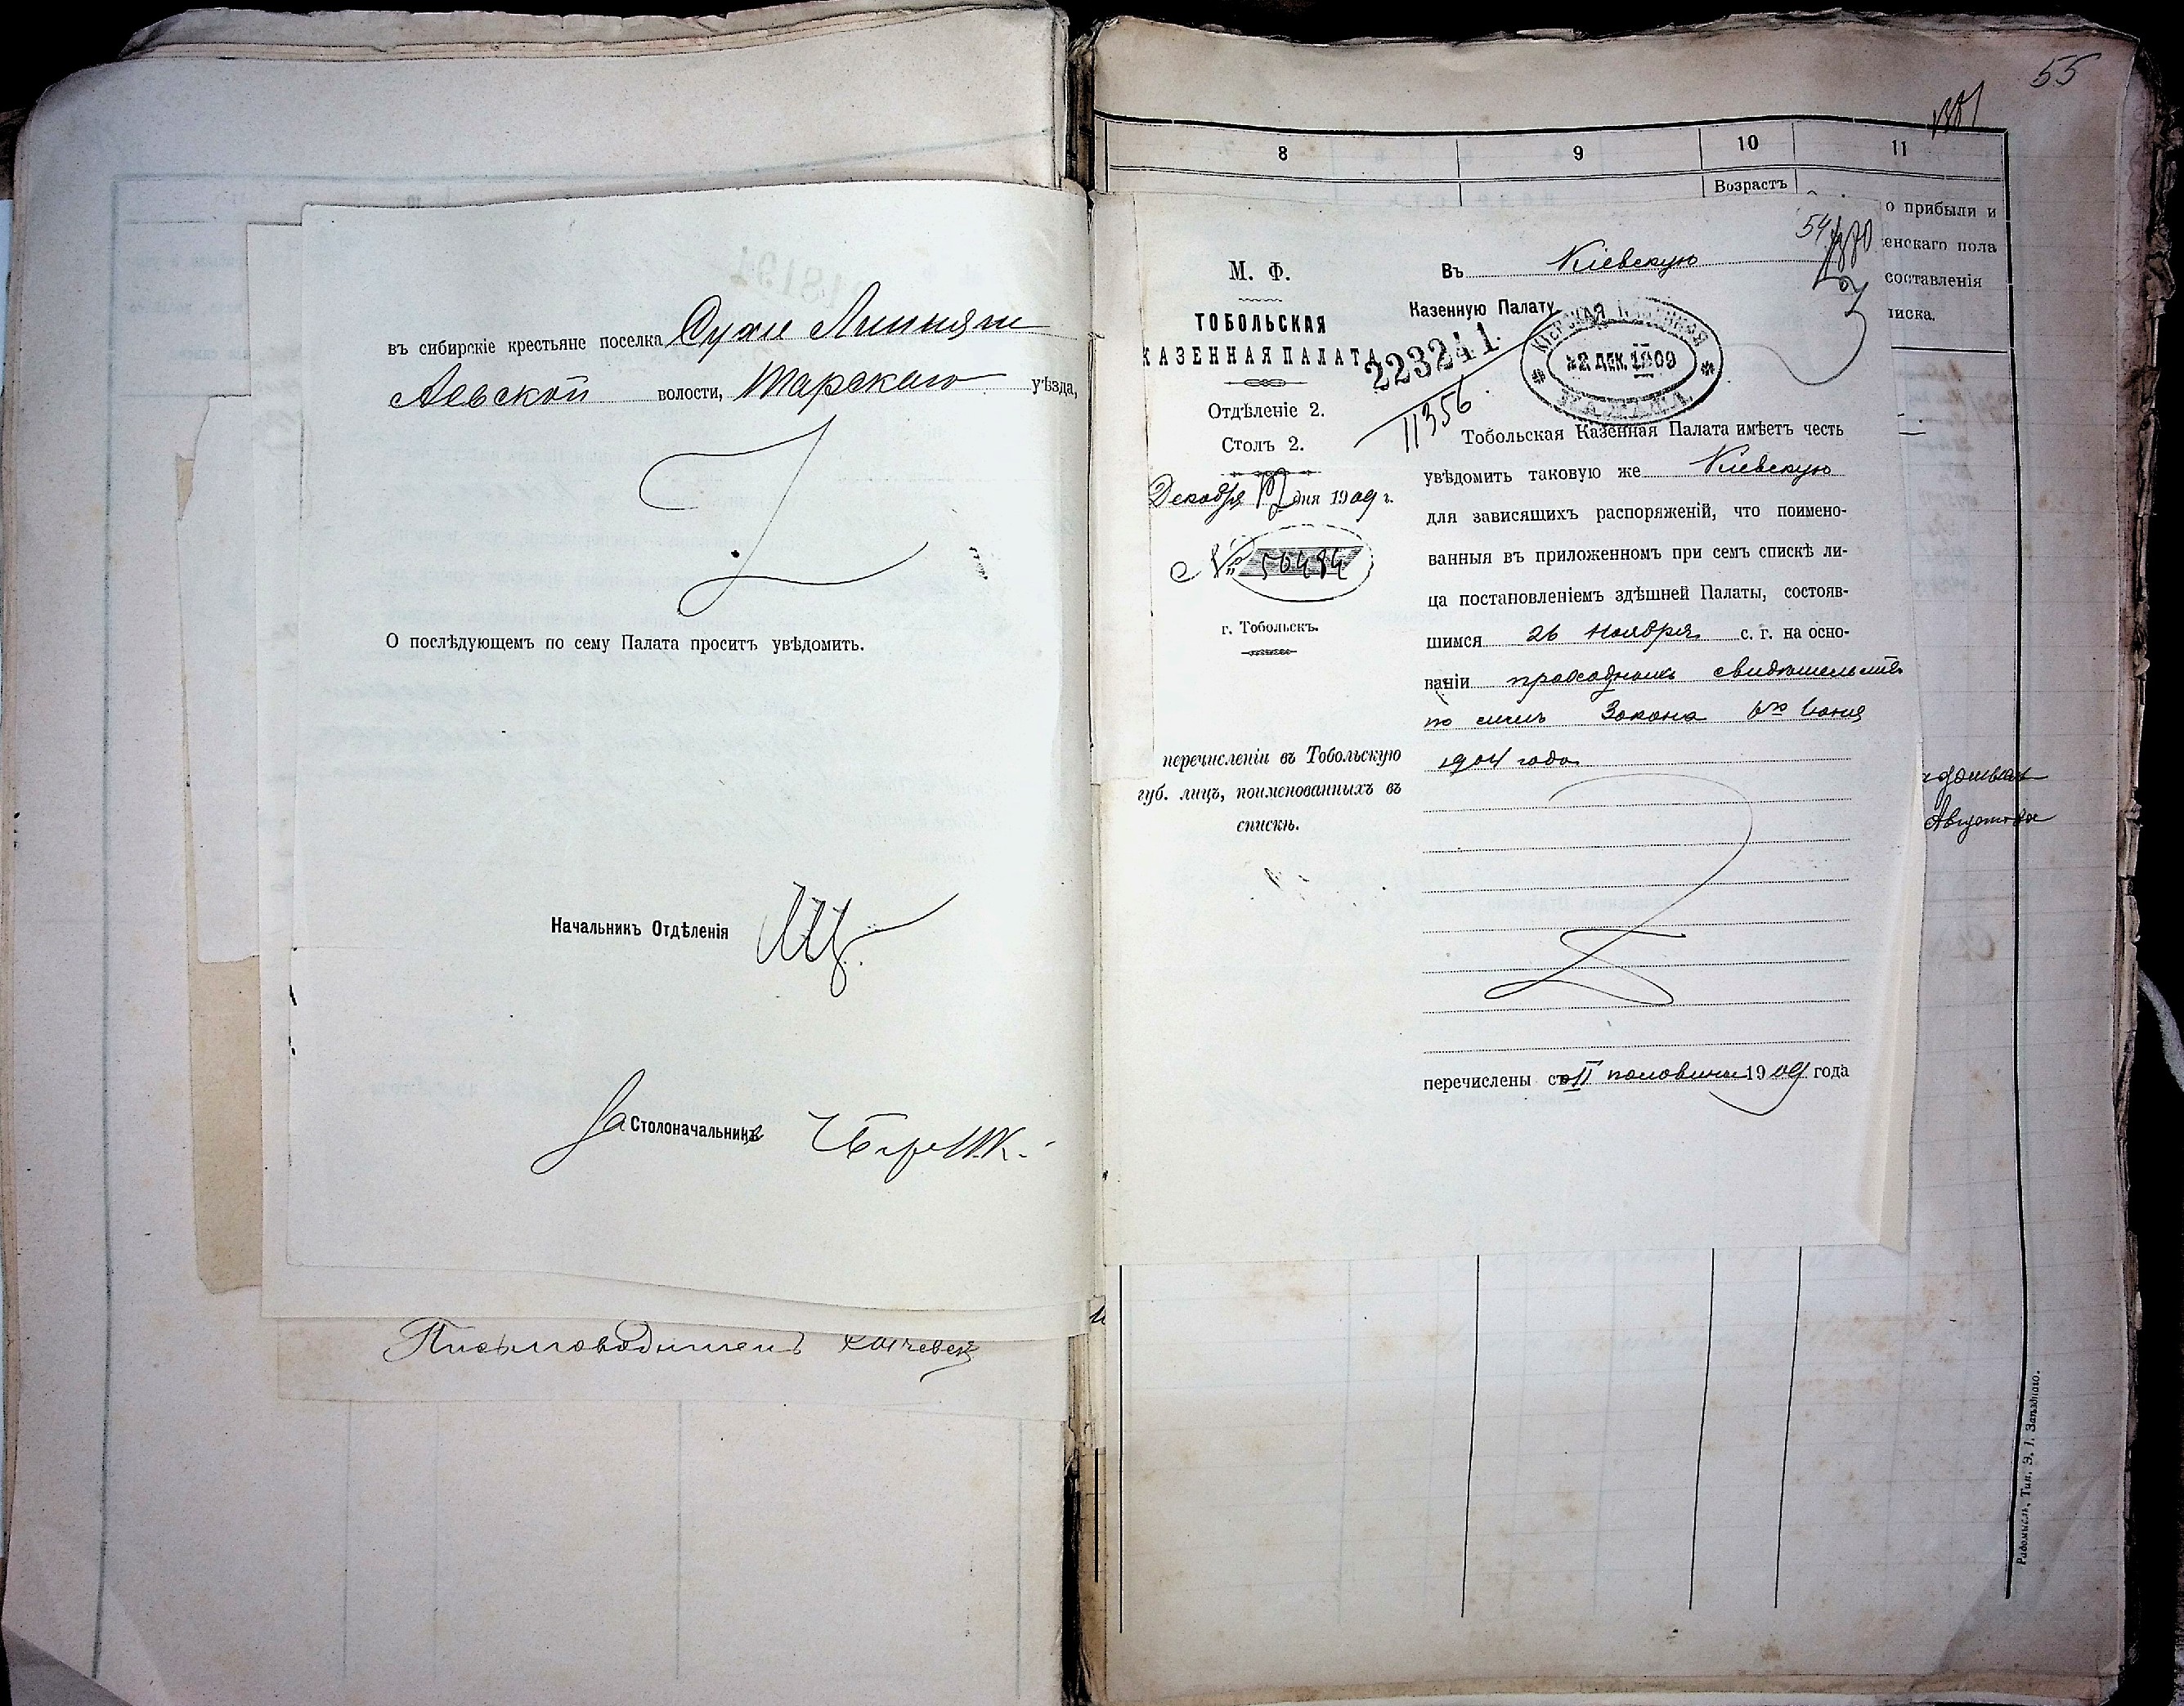 въ сибирскіе крестьяне поселка Сухіе
Аевской волости, Тарскаго уѣзда,
О послѣдующемъ по сему Палата проситъ увѣдомить.
Начальникъ Отдѣленія
За Столоначальника
Письмоводитель
55
8 9 10 11
Возрастъ
о прибыли и
енскаго пола
составленія
писка.
54
М. Ф.
ТОБОЛЬСКАЯ
КАЗЕННАЯ ПАЛАТА
Отдѣленіе 2.
Столъ 2.
Декабря 17 дня 1909 г.
№ 50494
г. Тобольскъ.
перечисленіи въ Тобольскую
губ. лицъ, поименованныхъ въ
спискѣ.
Въ Кіевскую
Казенную Палату
223241
11356
КІЕВСКАЯ КАЗЕННАЯ
ПАЛАТА
22 ДЕК. 1909
Тобольская Казенная Палата имѣетъ честь
увѣдомить таковую же Кіевскую
для зависящихъ распоряженій, что поимено-
ванныя въ приложенномъ при семъ спискѣ ли-
ца постановленіемъ здѣшней Палаты, состояв-
шимся 26 Ноября с. г. на осно-
ваніи проходныхъ свидѣтельствъ
по силѣ Закона 6го Іюня
1904 года
перечислены со II половины 1909 года
Августова
Радомысль, Тип. Э. І. Западнаго.